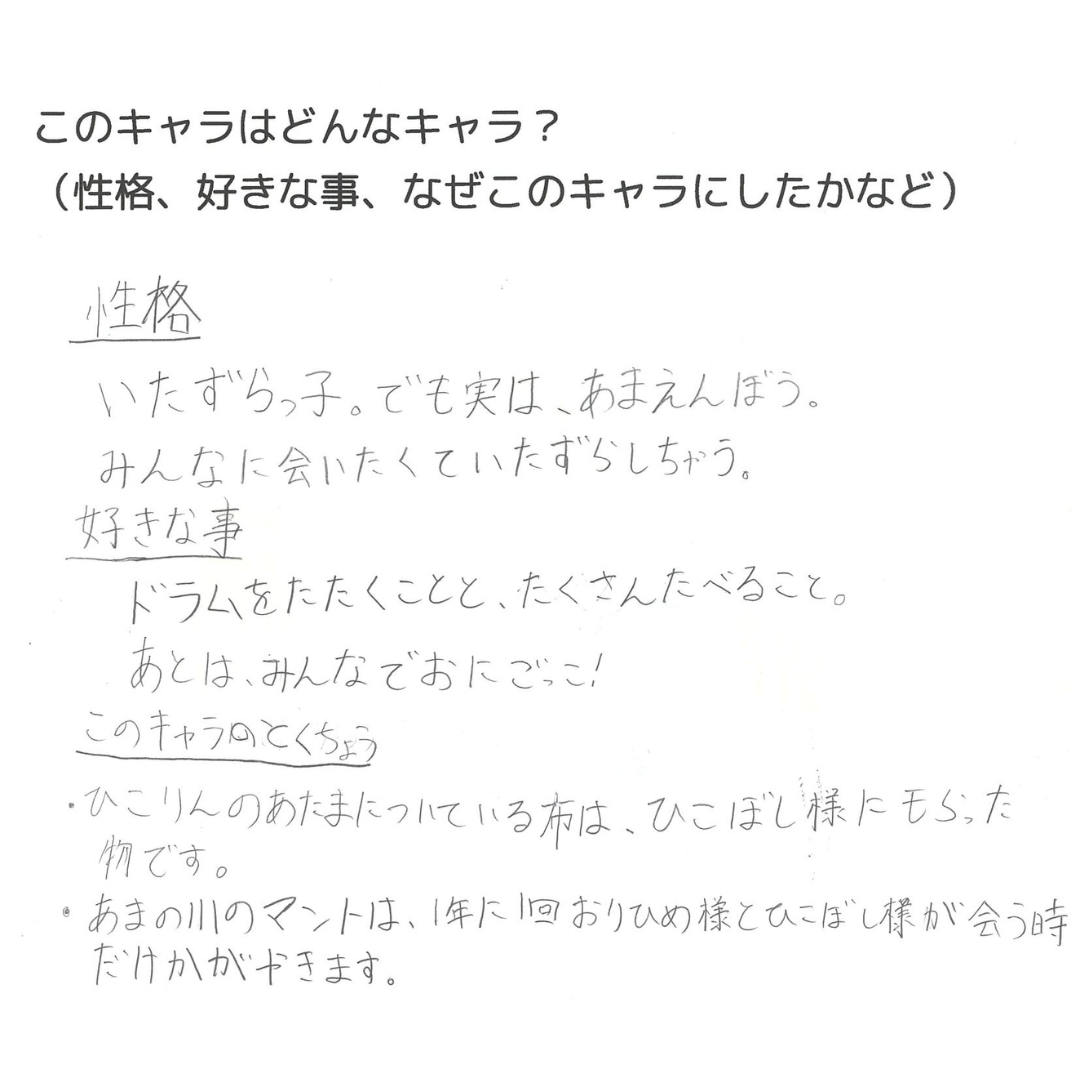 このキャラはどんなキャラ？
（性格、好きな事、なぜこのキャラにしたかなど）
性格
いたずらっ子。でも実は、あまえんぼう。
みんなに会いたくていたずらしちゃう。
好きな事
ドラムをたたくことと、たくさんたべること。
あとは、みんなでおにごっこ!
このキャラのとくちょう
・ひこりんのあたまについている布は、ひこぼし様にもらった
物です。
・あまの川のマントは、1年に1回おりひめ様とひこぼし様が会う時
だけかがやきます。